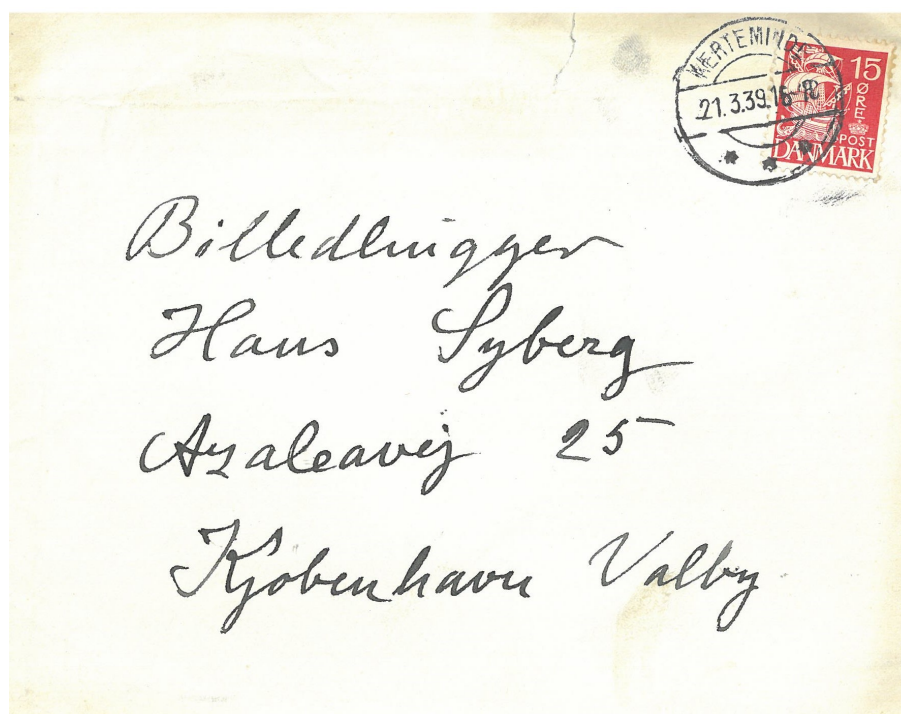 KERTEMINDE
21.3.39.16-18
15
ØRE
POST
DANMARK
Billedhugger
Hans Syberg
Azaleavej 25
Kjøbenhavn Valby